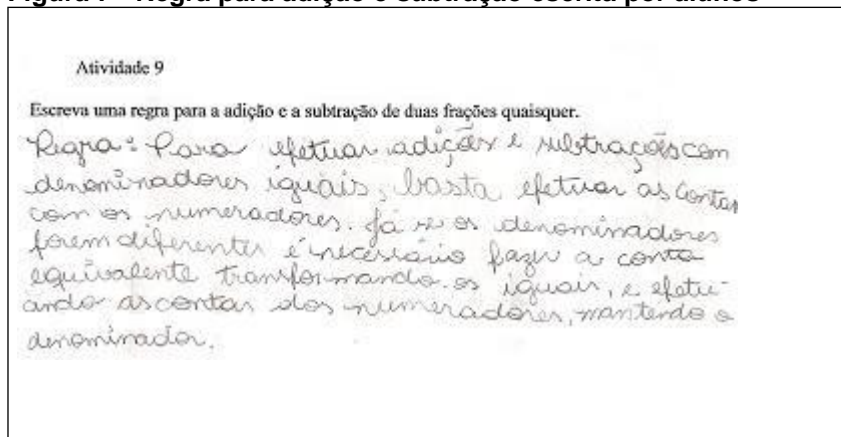 Atividade 9
Escreva uma regra para a adição e a subtração de duas frações quaisquer.
Regra: Para efetuar adições e subtrações com
denominadores iguais, basta efetuar as contas
com os numeradores. Já se os denominadores
forem diferentes é necessário fazer a conta
equivalente transformando-os iguais, e efetu-
ando as contas dos numeradores, mantendo o
denominador.